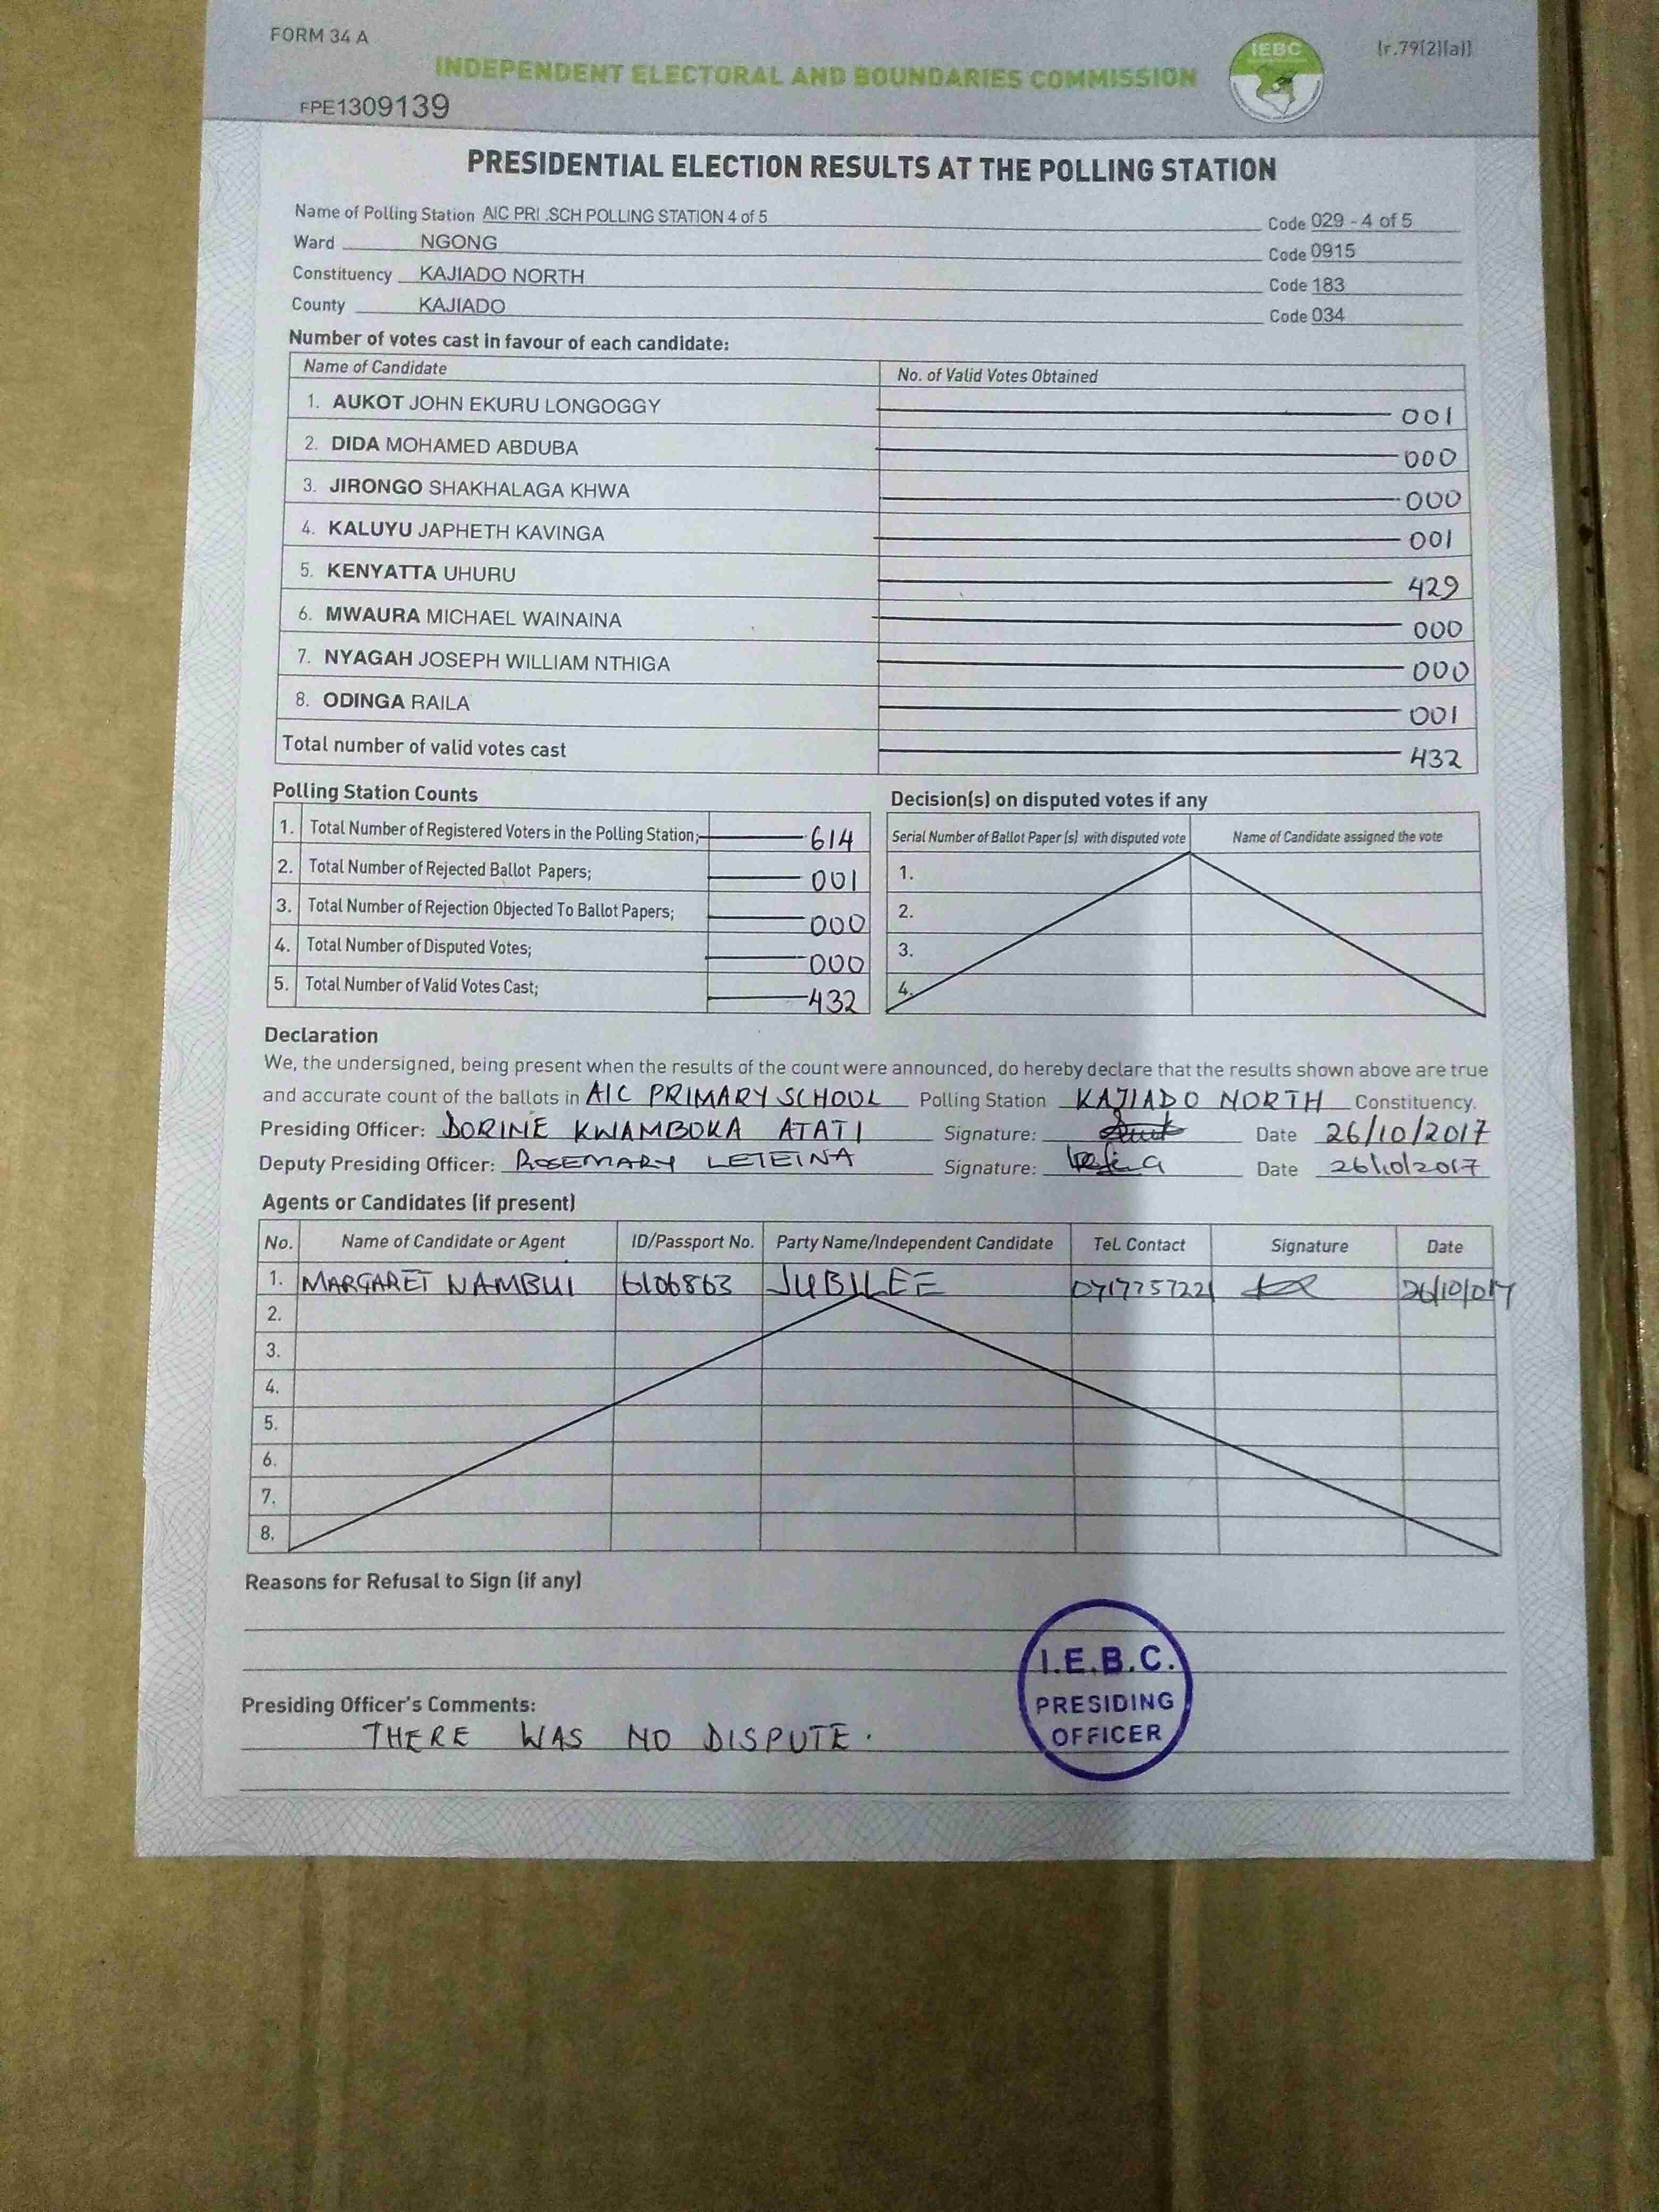 FORM 34 A
(r.79(2)(a))
INDEPENDENT ELECTORAL AND BOUNDARIES COMMISSION
IEBC
FPE1309139
PRESIDENTIAL ELECTION RESULTS AT THE POLLING STATION
Name of Polling Station AIC PRI .SCH POLLING STATION 4 of 5 Code 029 - 4 of 5
Ward NGONG Code 0915
Constituency KAJIADO NORTH Code 183
County KAJIADO Code 034
Number of votes cast in favour of each candidate:
Name of Candidate No. of Valid Votes Obtained
1. AUKOT JOHN EKURU LONGOGGY 001
2. DIDA MOHAMED ABDUBA 000
3. JIRONGO SHAKHALAGA KHWA 000
4. KALUYU JAPHETH KAVINGA 001
5. KENYATTA UHURU 429
6. MWAURA MICHAEL WAINAINA 000
7. NYAGAH JOSEPH WILLIAM NTHIGA 000
8. ODINGA RAILA 001
Total number of valid votes cast 432
Polling Station Counts
1. Total Number of Registered Voters in the Polling Station; 614
2. Total Number of Rejected Ballot Papers; 001
3. Total Number of Rejection Objected To Ballot Papers; 000
4. Total Number of Disputed Votes; 000
5. Total Number of Valid Votes Cast; 432
Decision(s) on disputed votes if any
Serial Number of Ballot Paper (s) with disputed vote Name of Candidate assigned the vote
1.
2.
3.
4.
Declaration
We, the undersigned, being present when the results of the count were announced, do hereby declare that the results shown above are true
and accurate count of the ballots in AIC PRIMARY SCHOOL Polling Station KAJIADO NORTH Constituency.
Presiding Officer: DORINE KWAMBOKA ATATI Signature: Date 26/10/2017
Deputy Presiding Officer: ROSEMARY LETEINA Signature: Date 26/10/2017
Agents or Candidates (if present)
No. Name of Candidate or Agent ID/Passport No. Party Name/Independent Candidate Tel. Contact Signature Date
1. MARGARET NAMBUI 6106863 JUBILEE 0717757221 26/10/017
2.
3.
4.
5.
6.
7.
8.
Reasons for Refusal to Sign (if any)
I.E.B.C.
PRESIDING
OFFICER
Presiding Officer's Comments:
THERE WAS NO DISPUTE.